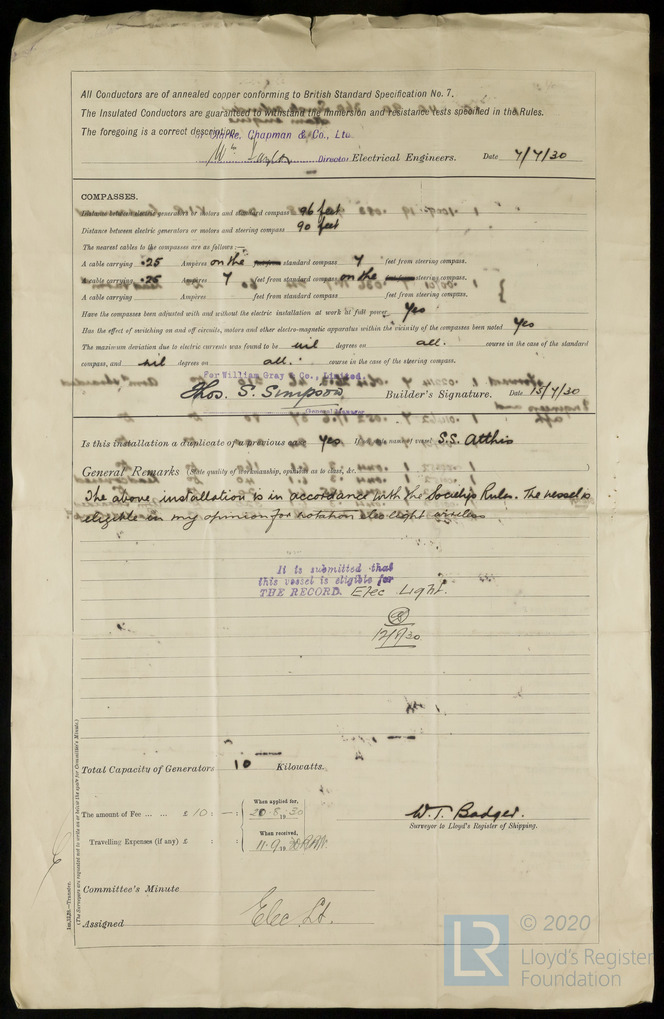 All Conductors are of annealed copper conforming to British Standard Specification No. 7.
The Insulated Conductors are guaranteed to withstand the immersion and resistance tests specified in the Rules.
The foregoing is a correct description,
Clarke, Chapman & Co., Ltd
Wm Taylor Director Electrical Engineers. Date 7/7/30
COMPASSES.
Distance between electric generators or motors and standard compass 96 feet
Distance between electric generators or motors and steering compass 90 feet
The nearest cables to the compasses are as follows:—
A cable carrying .25 Ampères on the standard compass 7 feet from steering compass.
A cable carrying .25 Ampères 7 feet from standard compass on the steering compass.
A cable carrying Ampères feet from standard compass feet from steering compass.
Have the compasses been adjusted with and without the electric installation at work at full power Yes
Has the effect of switching on and off circuits, motors and other electro-magnetic apparatus within the vicinity of the compasses been noted Yes
The maximum deviation due to electric currents was found to be nil degrees on all. course in the case of the standard
compass, and nil degrees on all. course in the case of the steering compass.
For William Gray & Co., Limited.
Thos. S. Simpson Builder's Signature. Date 15/7/30
General Manager
Is this installation a duplicate of a previous case Yes If so, state name of vessel S.S. Atthis
General Remarks (State quality of workmanship, opinions as to class, &c.)
The above installation is in accordance with the Society's Rules. The vessel is
eligible in my opinion for notation elec light wireless
It is submitted that
this vessel is eligible for
THE RECORD. Elec Light.
12/9/30
Total Capacity of Generators 10 Kilowatts.
The amount of Fee ... ... £ 10 : — :
When applied for,
20.8.1930
Travelling Expenses (if any) £ : :
When received,
11.9.1930
W. T. Badger.
Surveyor to Lloyd's Register of Shipping.
Committee's Minute
Assigned Elec Lt.
(The Surveyors are requested not to write on or below the space for Committee's Minute.)
© 2020
LR Lloyd's Register
Foundation